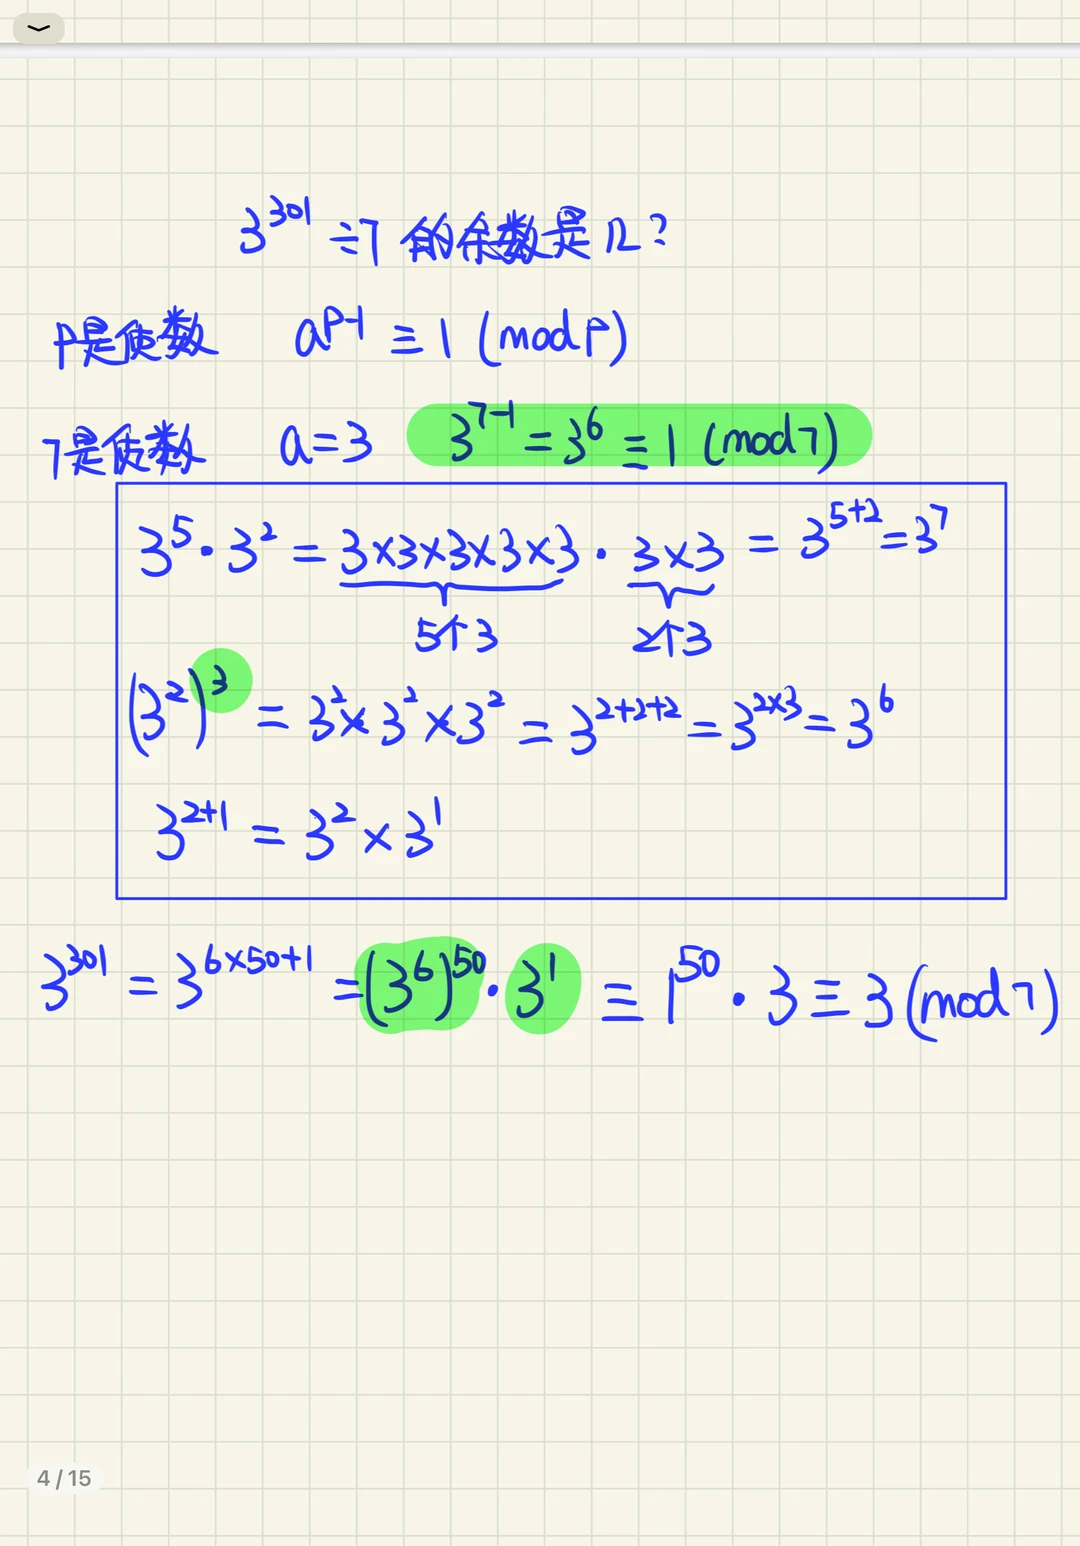 3^301 ÷7 的余数是几?
P是质数 a^(P-1) ≡ 1 (mod P)
7是质数 a=3 3^(7-1) = 3^6 ≡ 1 (mod 7)
3^5 · 3^2 = 3×3×3×3×3 · 3×3 = 3^(5+2) = 3^7
5个3 2个3
(3^2)^3 = 3^2 × 3^2 × 3^2 = 3^(2+2+2) = 3^(2×3) = 3^6
3^(2+1) = 3^2 × 3^1
3^301 = 3^(6×50+1) = (3^6)^50 · 3^1 ≡ 1^50 · 3 ≡ 3 (mod 7)
4 / 15